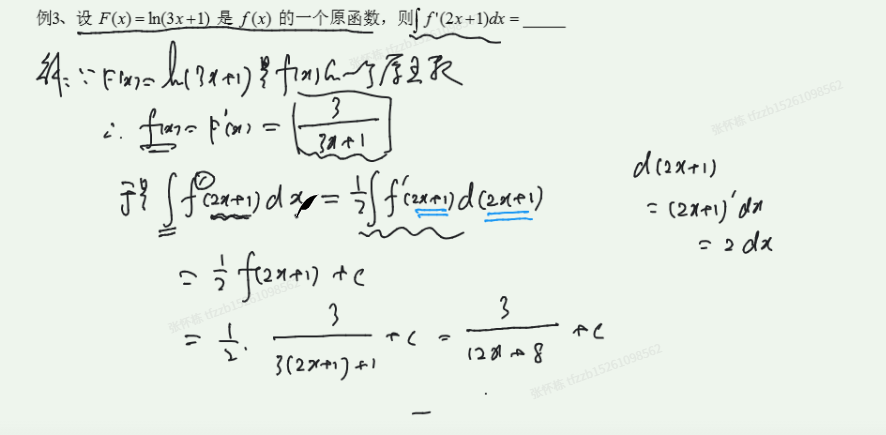 例3、设 F(x)=ln(3x+1) 是 f(x) 的一个原函数，则∫ f'(2x+1)dx = _____
解: ∵ F(x) = ln(3x+1) 是 f(x) 的一个原函数
∴ f(x) = F'(x) = 3/(3x+1)
于是 ∫ f'(2x+1) dx = 1/2 ∫ f'(2x+1) d(2x+1)
= 1/2 f(2x+1) + C
= 1/2 · 3/(3(2x+1)+1) + C = 3/(12x+8) + C
d(2x+1)
= (2x+1)' dx
= 2 dx
张怀栋 tfzzb15261098562
张怀栋 tfzzb15261098562
张怀栋 tfzzb15261098562